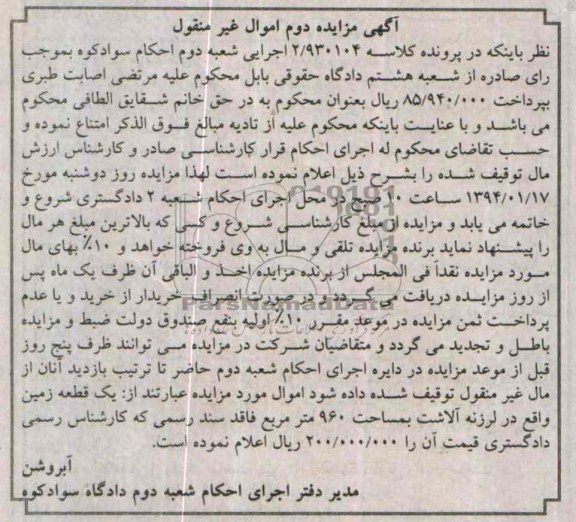 آگهی مزایده دوم اموال غیر منقول
نظر باینکه در پرونده کلاسه ۲/۹۳۰۱۰۴ اجرایی شعبه دوم احکام سوادکوه بموجب
رای صادره از شعبه هشتم دادگاه حقوقی بابل محکوم علیه مرتضی اصابت طبری
بپرداخت ۸۵/۹۴۰/۰۰۰ ریال بعنوان محکوم به در حق خانم شقایق الطافی محکوم
می باشد و با عنایت باینکه محکوم علیه از تادیه مبالغ فوق الذکر امتناع نموده و
حسب تقاضای محکوم له اجرای احکام قرار کارشناسی صادر و کارشناس ارزش
مال توقیف شده را بشرح ذیل اعلام نموده است لهذا مزایده روز دوشنبه مورخ
۱۳۹۴/۰۱/۱۷ ساعت ۱۰ صبح در محل اجرای احکام شعبه ۲ دادگستری شروع و
خاتمه می یابد و مزایده از مبلغ کارشناسی شروع و کسی که بالاترین مبلغ هر مال
را پیشنهاد نماید برنده مزایده تلقی و مال به وی فروخته خواهد و ۱۰٪ بهای مال
مورد مزایده نقداً فی المجلس از برنده مزایده اخذ و الباقی آن ظرف یک ماه پس
از روز مزایده دریافت می گردد و در صورت انصراف خریدار از خرید و یا عدم
پرداخت ثمن مزایده در موعد مقرر ۱۰٪ اولیه بنفع صندوق دولت ضبط و مزایده
باطل و تجدید می گردد و متقاضیان شرکت در مزایده می توانند ظرف پنج روز
قبل از موعد مزایده در دایره اجرای احکام شعبه دوم حاضر تا ترتیب بازدید آنان از
مال غیر منقول توقیف شده داده شود اموال مورد مزایده عبارتند از: یک قطعه زمین
واقع در لرزنه آلاشت بمساحت ۹۶۰ متر مربع فاقد سند رسمی که کارشناس رسمی
دادگستری قیمت آن را ۲۰۰/۰۰۰/۰۰۰ ریال اعلام نموده است.
آبروشن
مدیر دفتر اجرای احکام شعبه دوم دادگاه سوادکوه
ParsNamadData